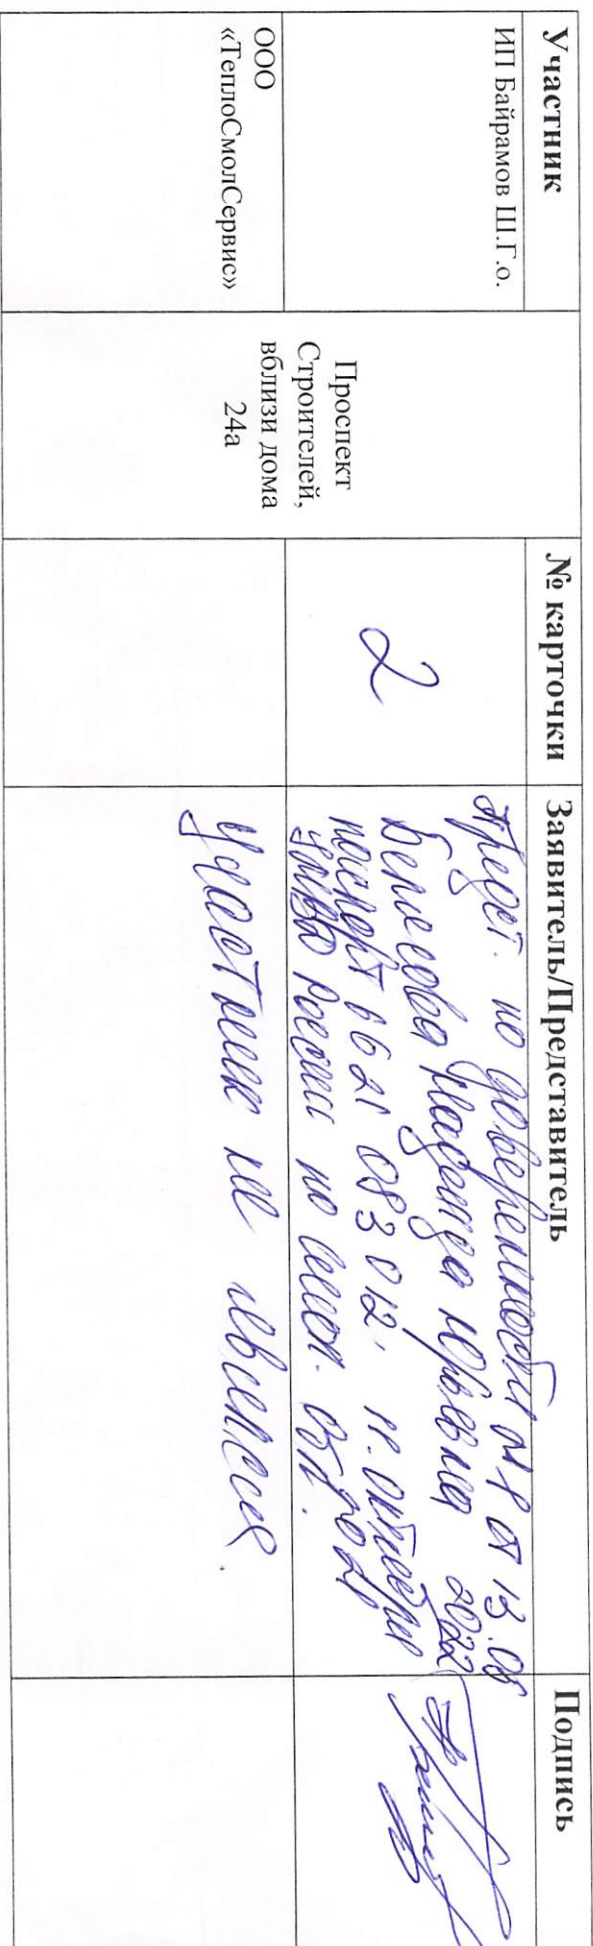 Участник
№ карточки
Заявитель/Представитель
Подпись
ИП Байрамов Ш.Г.о.
Проспект
Строителей,
вблизи дома
24а
2
Предст. по доверенности №1 от 13.06
2022
Надежда Юрьевна
паспорт 6621 083012, 11. октября
УМВД России по Смол. обл.
ООО
«ТеплоСмолСервис»
Участник не явился.